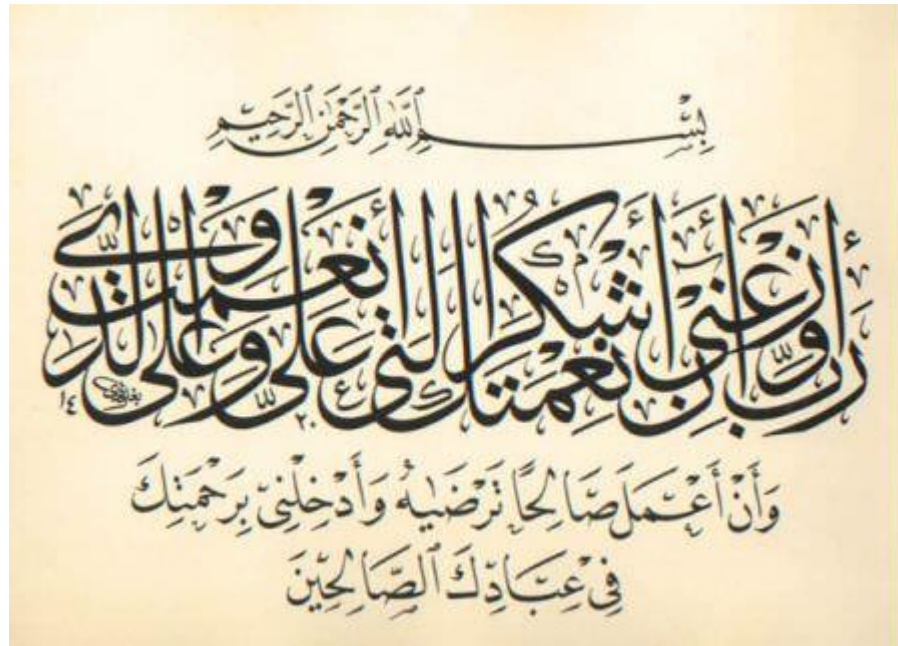 بِسْمِ ٱللَّهِ ٱلرَّحْمَٰنِ ٱلرَّحِيمِ
رَبِّ أَوْزِعْنِي أَنْ أَشْكُرَ نِعْمَتَكَ الَّتِي أَنْعَمْتَ عَلَيَّ وَعَلَىٰ وَالِدَيَّ
وَأَنْ أَعْمَلَ صَالِحًا تَرْضَىٰهُ وَأَدْخِلْنِي بِرَحْمَتِكَ
فِي عِبَادِكَ ٱلصَّالِحِينَ